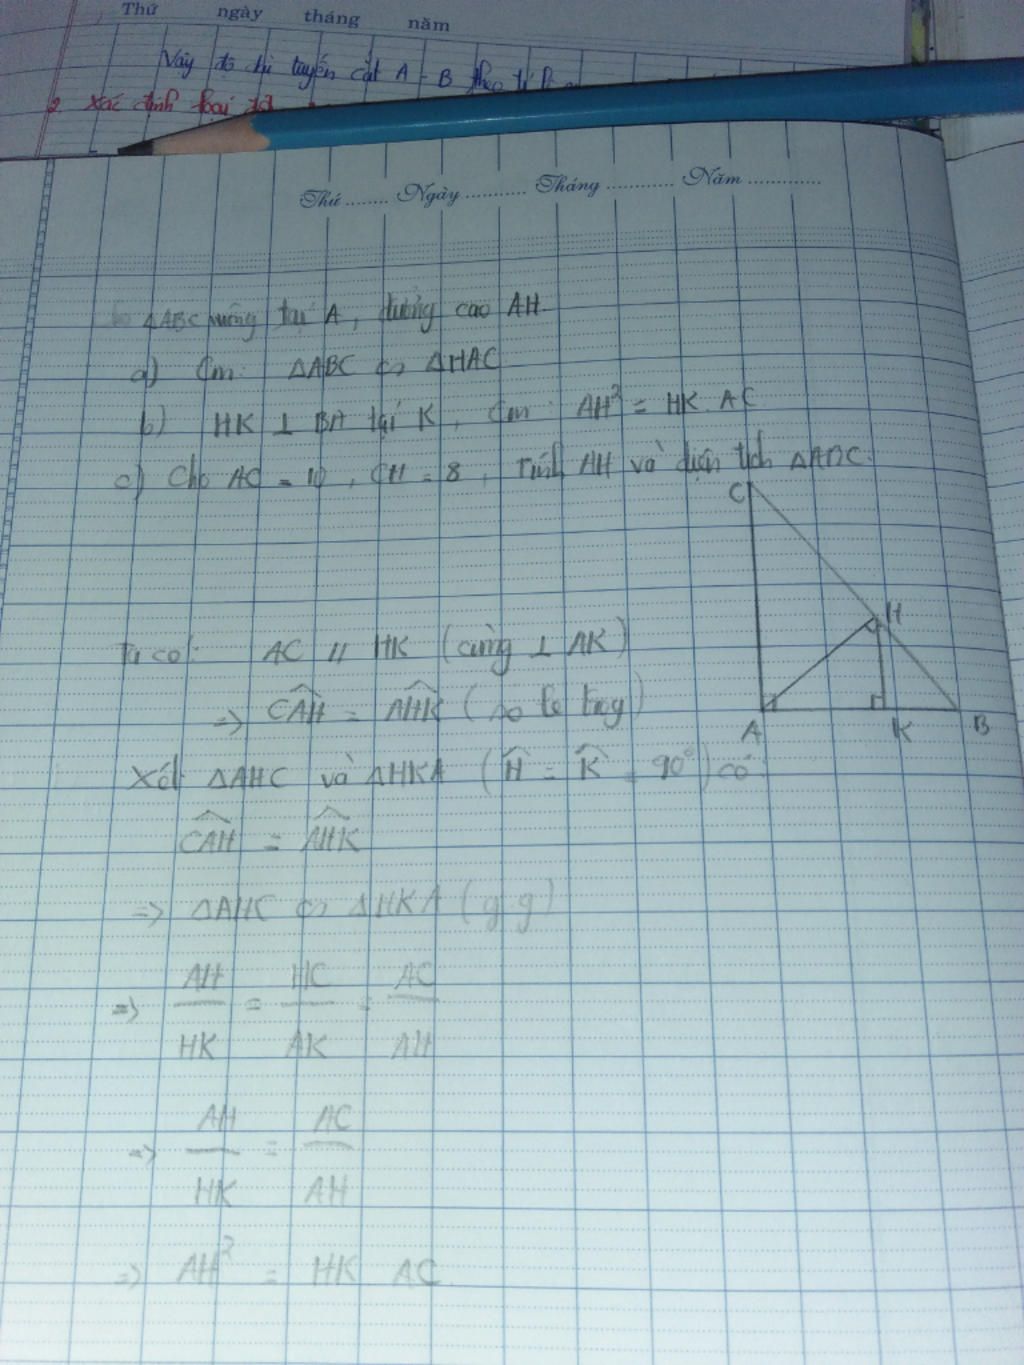 Thứ ngày tháng năm
Vậy độ chi tuyến cắt A - B theo tỉ lệ
2. Xác định loại
Thứ ........ Ngày ........... Tháng ............ Năm .............
ΔABC vuông tại A, đường cao AH.
a) Cm: ΔABC ∽ ΔHAC
b) HK ⊥ BA tại K, Cm: AH² = HK. AC
c) Cho AC = 10, CH = 8, Tính AH và diện tích ΔABC.
C
H
A
K
B
Ta có: AC // HK (cùng ⊥ AK)
=> CAH^ = AHK^ (so le trong)
Xét ΔAHC và ΔHKA (H^ = K^ = 90°) có:
CAH^ = AHK^
=> ΔAHC ∽ ΔHKA (g.g)
=> AH/HK = HC/AK = AC/AH
=> AH/HK = AC/AH
=> AH² = HK. AC